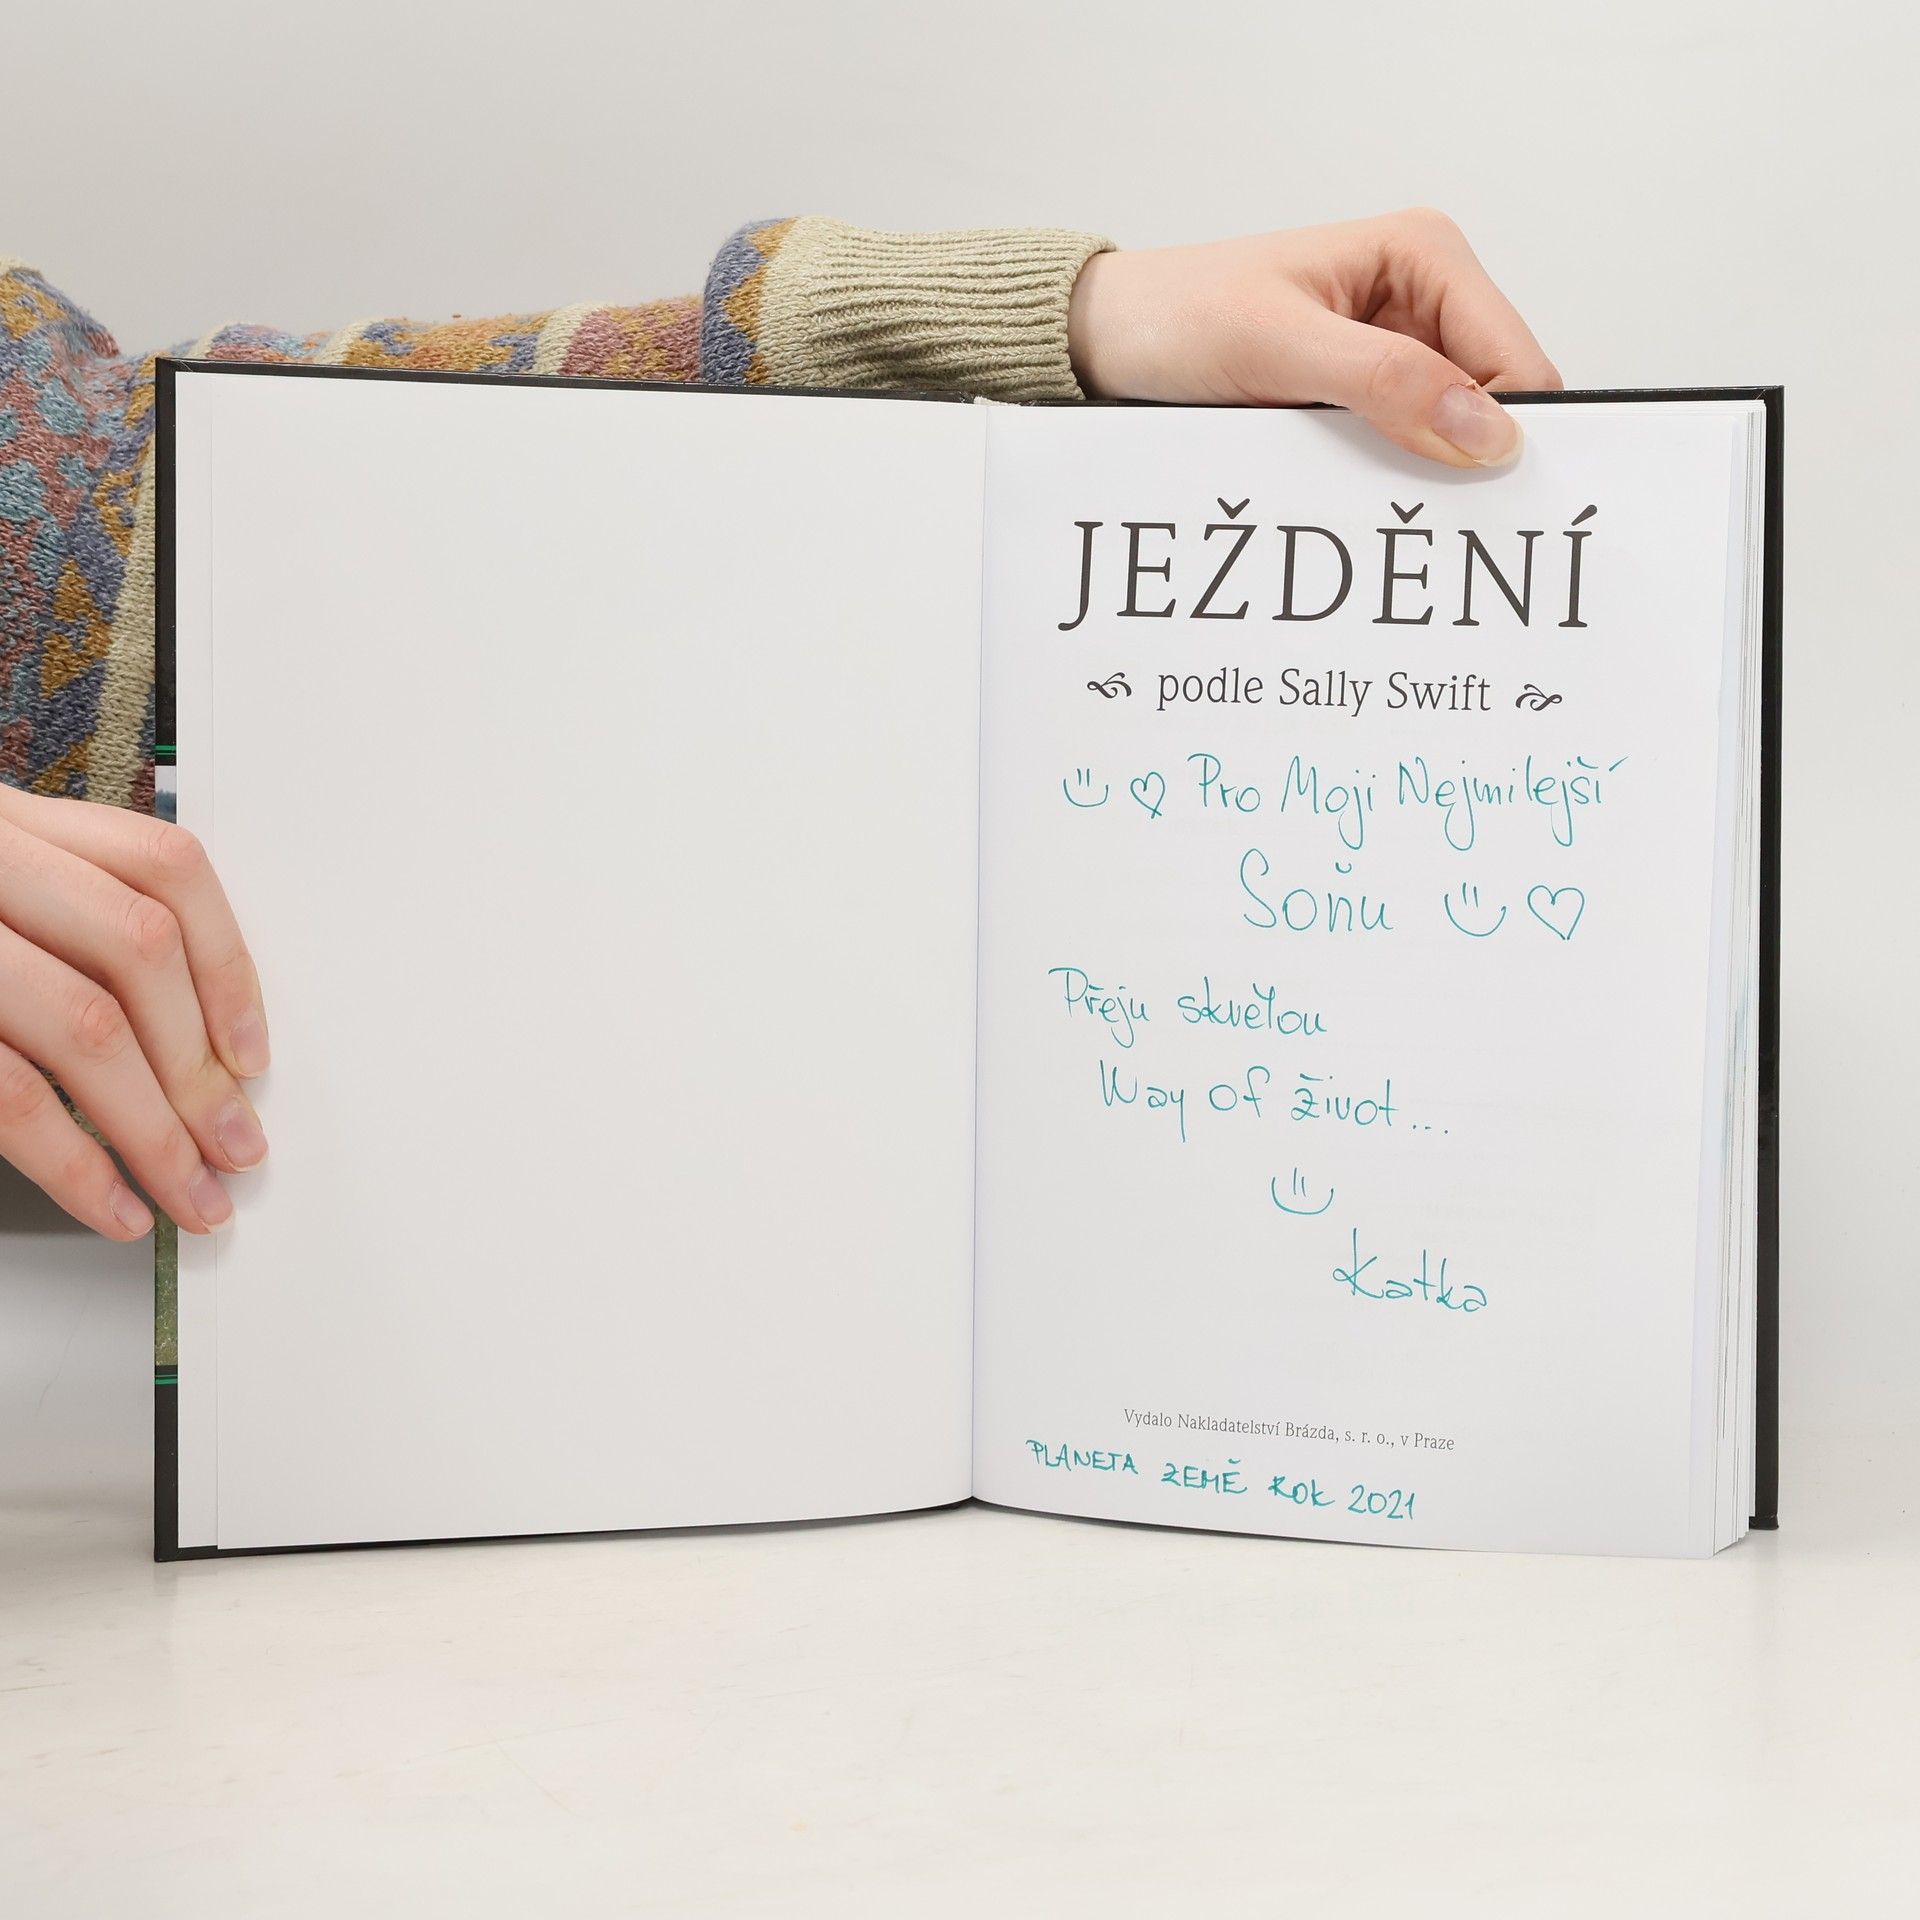 JEŽDĚNÍ
podle Sally Swift
Pro Moji Nejmilejší
Soňu
Přeju skvělou
Way of život...
Katka
Vydalo Nakladatelství Brázda, s. r. o., v Praze
PLANETA ZEMĚ ROK 2021